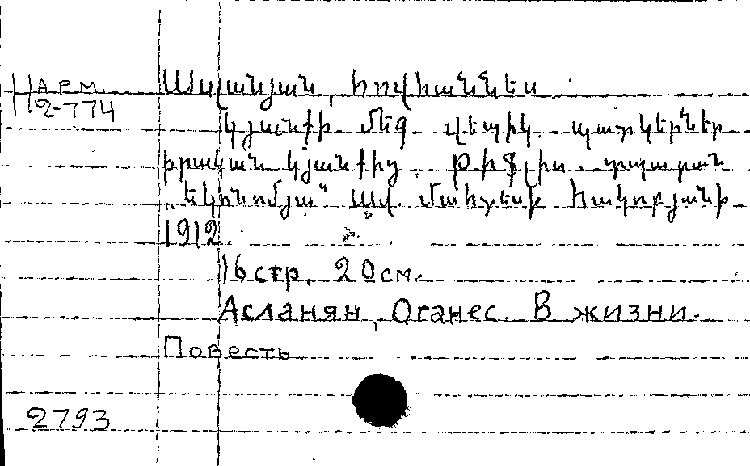 АРМ
2-774
Ասլանյան, Հովհաննես
Կյանքի մեջ վեպիկ պատկերներ
իրական կյանքից Թիֆլիս տպարան
„Եկոնոմյա“ Ավ. Մահտեսի Հակոբյանի
1912
16 стр. 20 см.
Асланян, Оганес. В жизни.
Повесть
2793